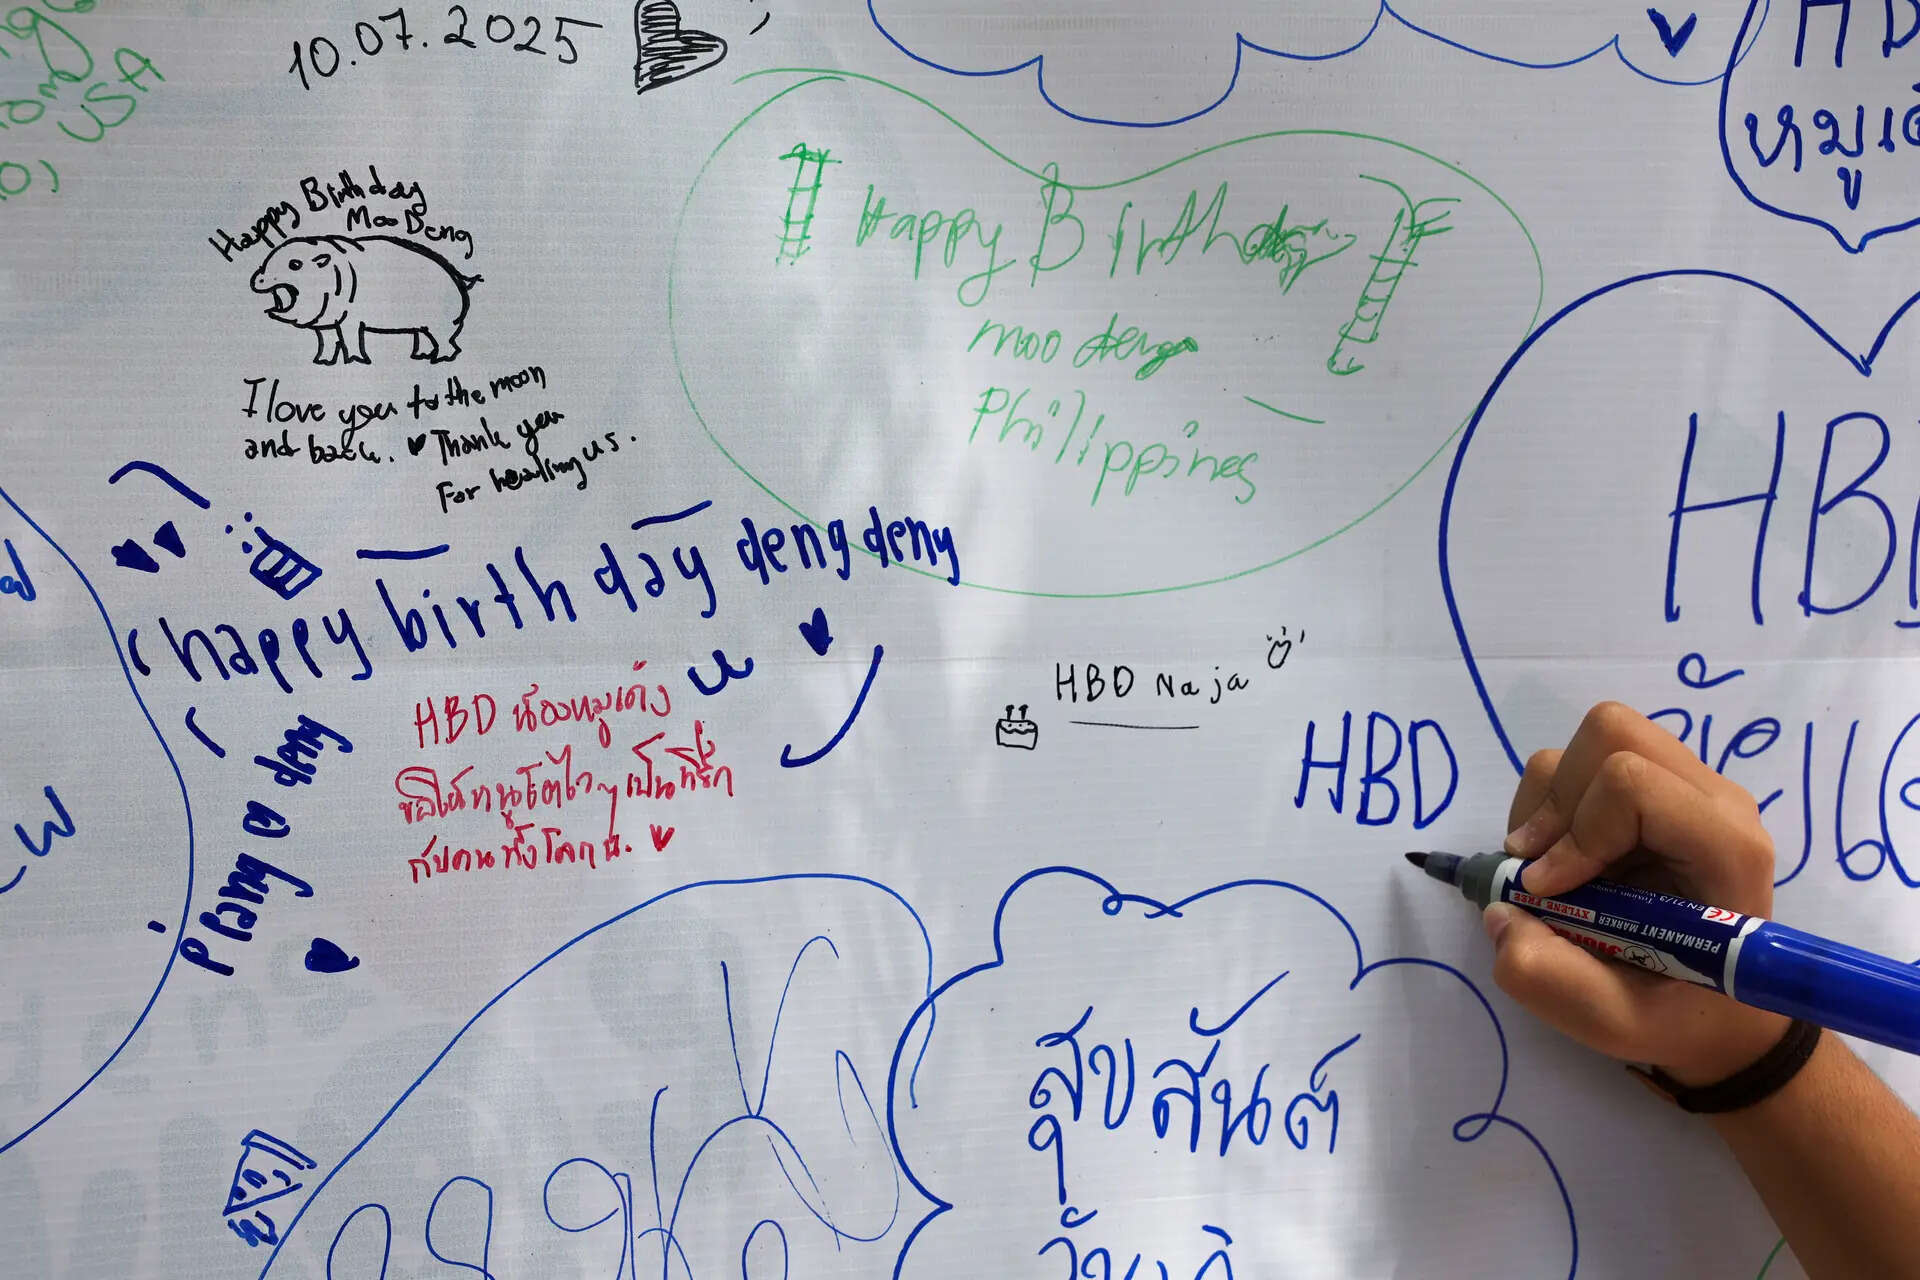 USA
10.07.2025
Happy Birthday
Moo Deng
I love you to the moon
and back. Thank you
For healing us.
Happy Birthday
moo deng
Philippines
HBD
หมูเด้
happy birthday dengdeng
HBD น้องหมูเด้ง
ขอให้หนูโตไวๆ เป็นที่รัก
กับคนทั้งโลกน.
HBD Naja
HBD
HBD
สุขสันต์
วันเกิ
PERMANENT MARKER
XYLENE FREE
EN 71/3